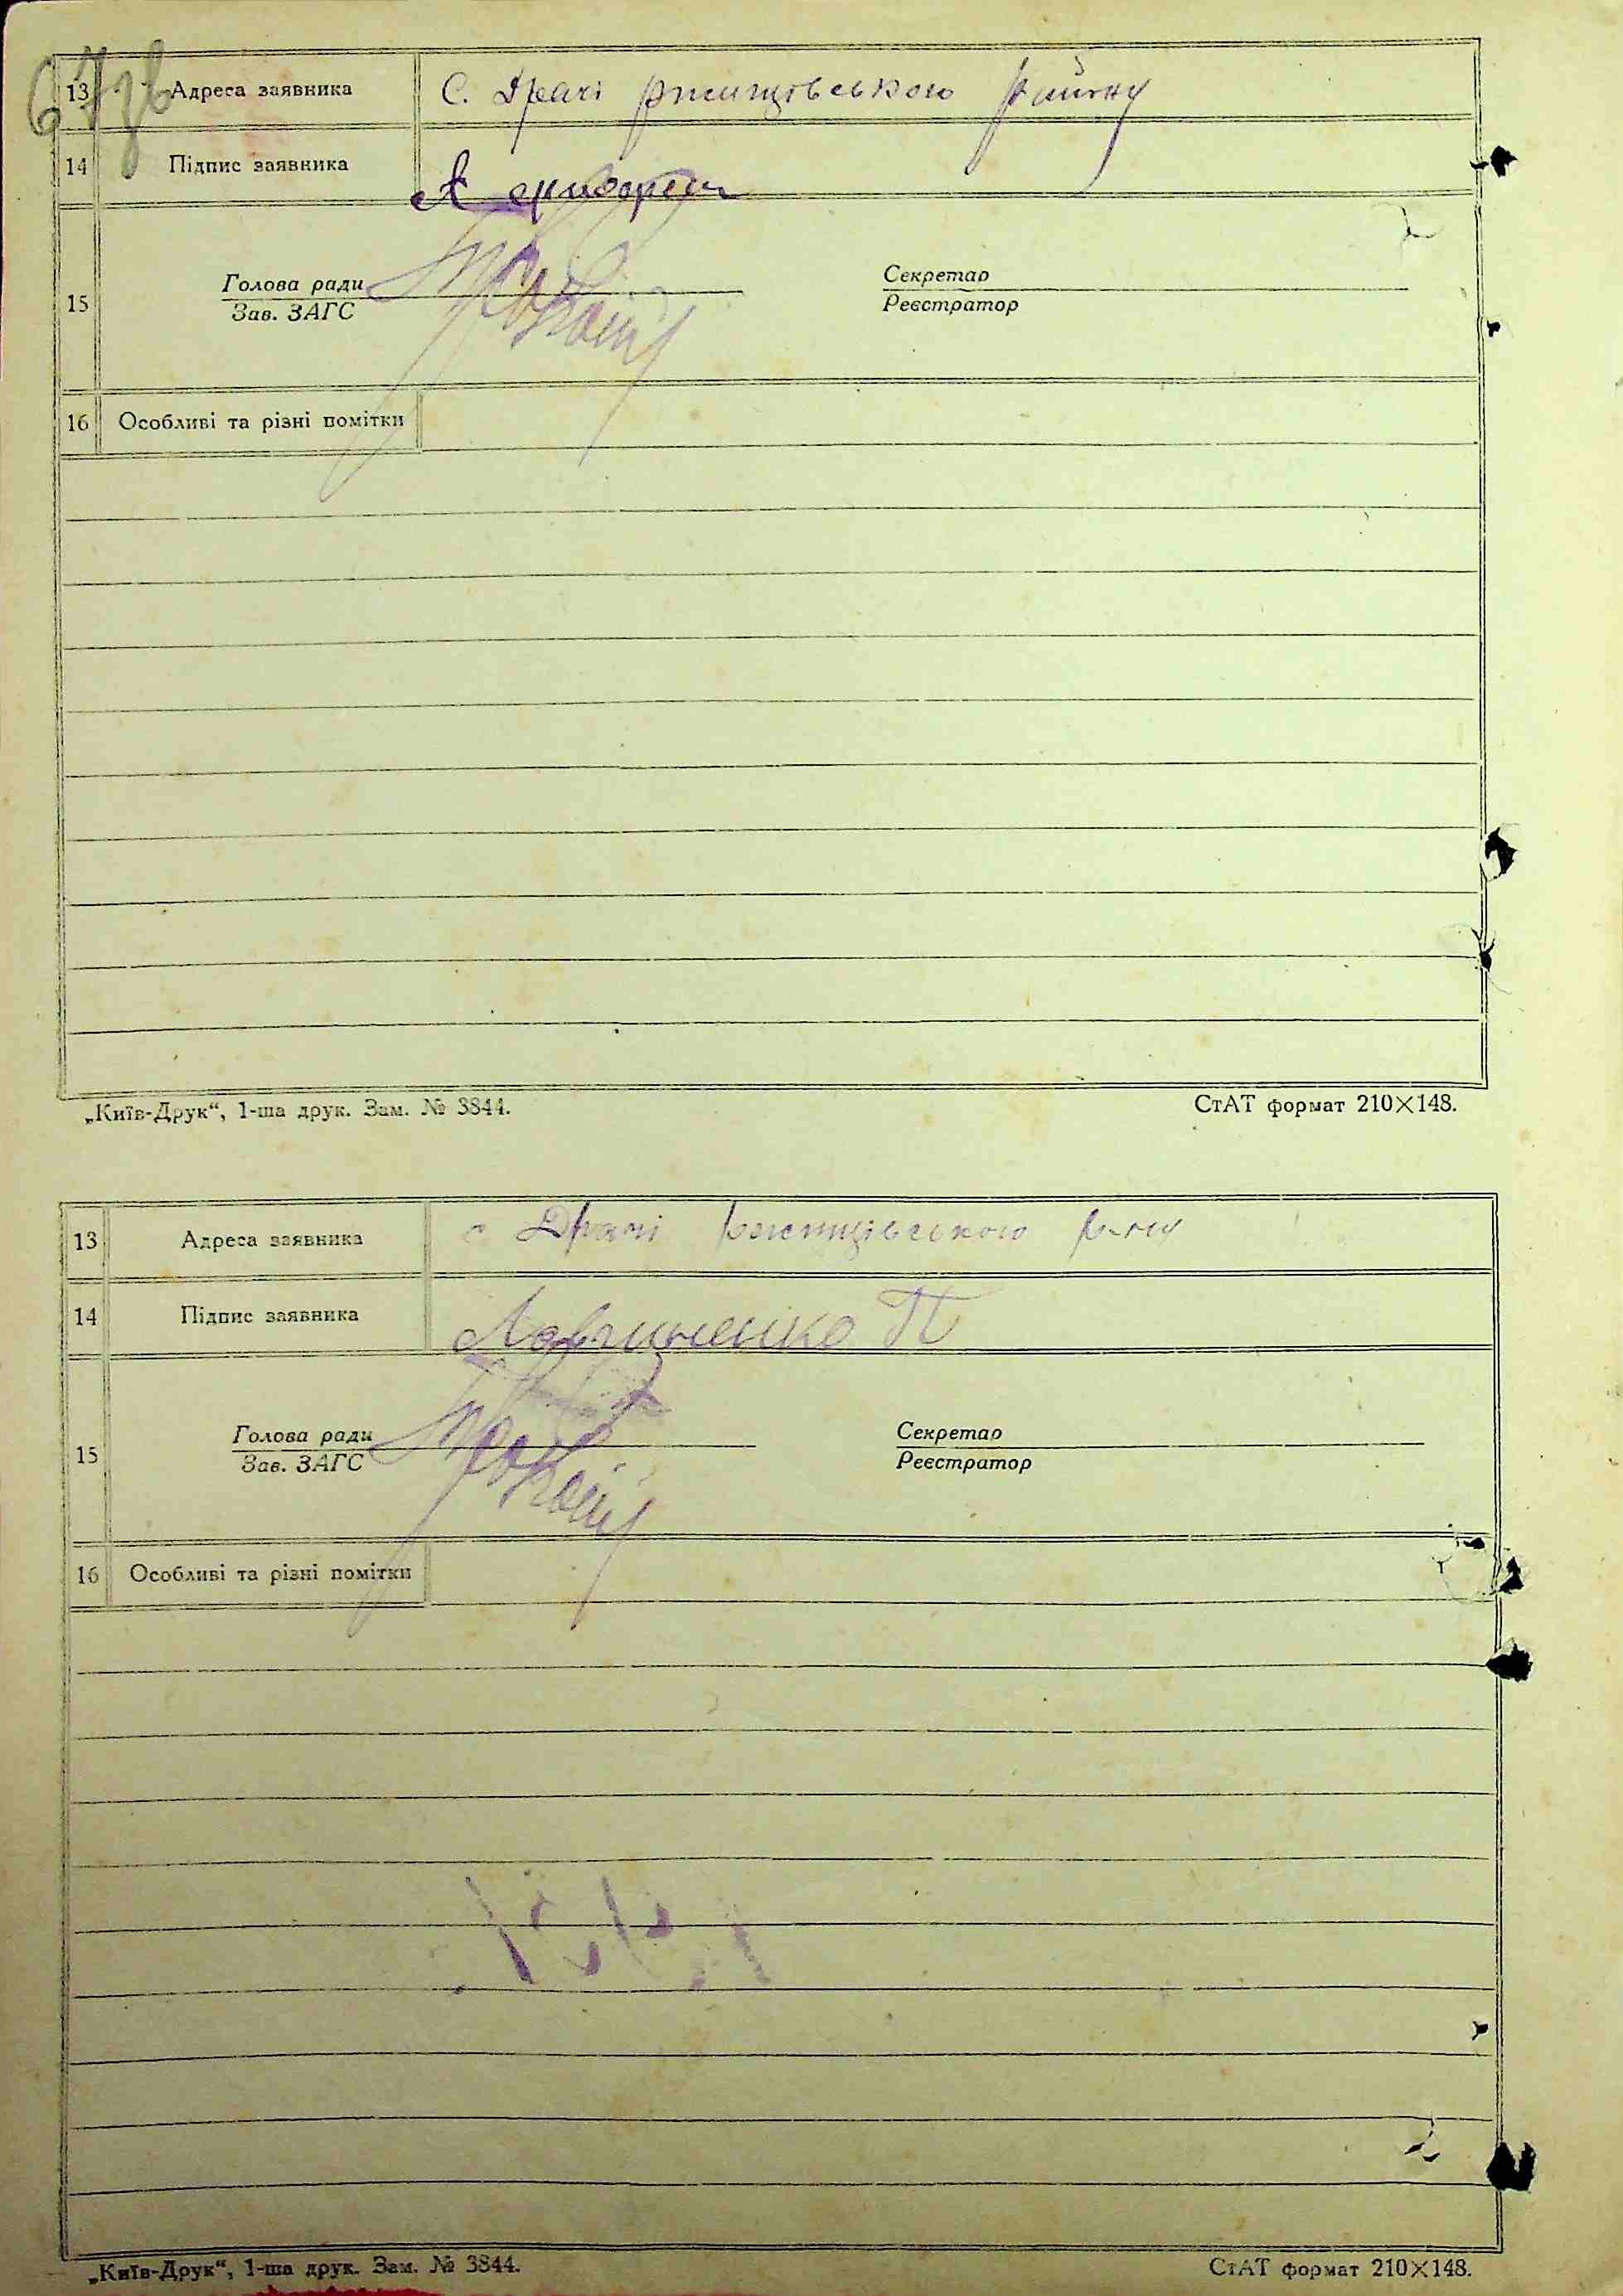 67зв
13 Адреса заявника С. Драчі ржищівського району
14 Підпис заявника
15 Голова ради Секретар
Зав. ЗАГС Реєстратор
16 Особливі та різні помітки
„Київ-Друк“, 1-ша друк. Зам. № 3844. СтАТ формат 210×148.
13 Адреса заявника с Драчі ржищівського р-ну
14 Підпис заявника Литвиненко П
15 Голова ради Секретар
Зав. ЗАГС Реєстратор
16 Особливі та різні помітки
„Київ-Друк“, 1-ша друк. Зам. № 3844. СтАТ формат 210×148.